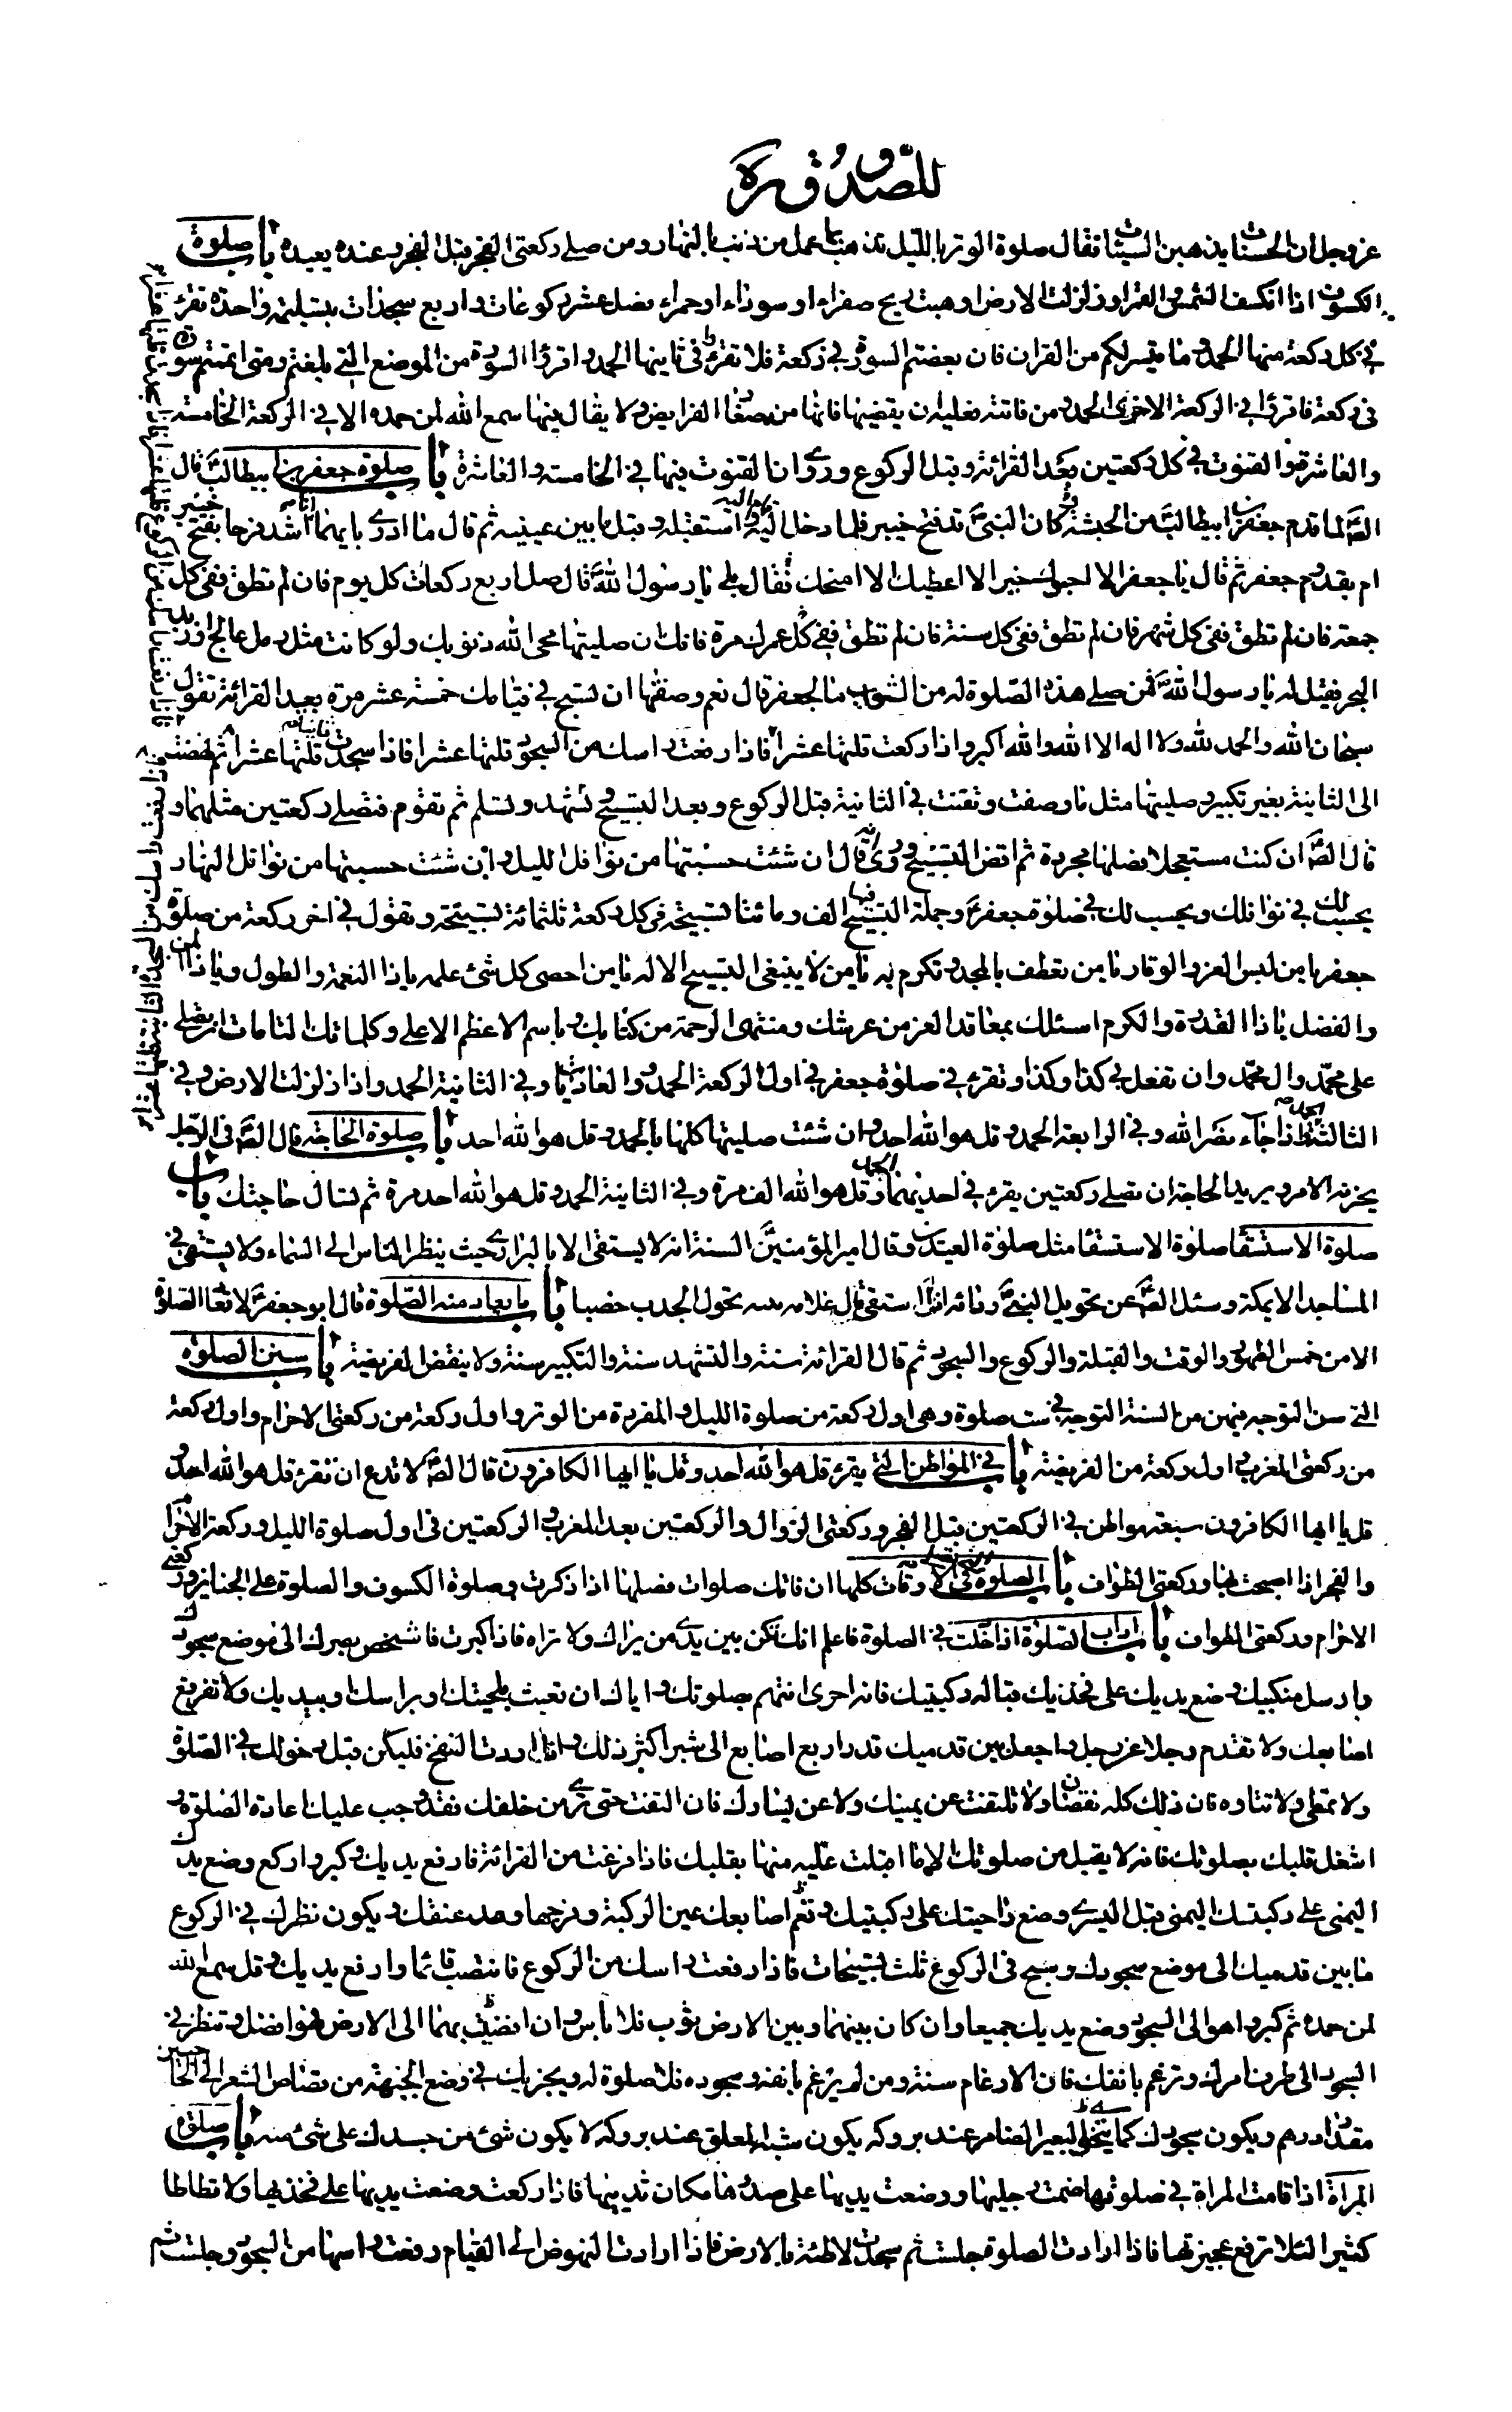 للصدوق ره
عز وجل ان الحسنات يذهبن السيئات فقال صلوة الوتر بالليل تذهب بما عمل من ذنب بالنهار ومن صلى ركعتى الفجر قبل الفجر وعنده يعيده باب صلوة
الكسوف اذا انكسف الشمس او القمر او زلزلت الارض او هبت ريح صفراء او سوداء او حمراء فصل عشر ركوعات واربع سجدات بتسليمة واحدة تقرء
فى كل ركعة منها الحمد وما تيسر لكم من القران فان بعضتم السورة فى ركعة فلا تقرء فى ثانيها الحمد واقرؤا السورة من الموضع التى بلغتم ومتى اتممتم سورة
فى ركعة فاقرؤا فى الركعة الاخرى الحمد ومن فاتته فعليه ان يقضيها فانها من صغا الفرايض ولا يقال فيها سمع الله لمن حمده الا فى الركعة الخامسة
والعاشرة والقنوت فى كل ركعتين بعد القرائة وقبل الركوع وروى ان القنوت فيها فى الخامسة والعاشرة باب صلوة جعفر بن ابيطالب قال
الص لما قدم جعفر بن ابيطالب من الحبشة وكان النبى قد فتح خيبر فلما دخل اليه قام اليه واستقبله وقبل ما بين عينيه ثم قال ما ادرى بايهما انا اشد فرحا بفتح خيبر
ام بقدوم جعفر ثم قال يا جعفر الا احبوك بخير الا اعطيك الا امنحك فقال بلى يا رسول الله قال صل اربع ركعات كل يوم فان لم تطق ففى كل
جمعة فان لم تطق ففى كل شهر فان لم تطق ففى كل سنة فان لم تطق ففى كل عمرك مرة فانك ان صليتها محى الله ذنوبك ولو كانت مثل رمل عالج او زبد
البحر فقيل له يا رسول الله فمن صلى هذه الصلوة له من الثواب ما لجعفر قال نعم وصفتها ان تسبح فى قيامك خمسة عشر مرة بعد القرائة تقول
سبحان الله والحمد لله ولا اله الا الله والله اكبر واذا ركعت قلتها عشرا فاذا رفعت راسك من السجود قلتها عشرا فاذا سجدت ثانيا قلتها عشرا ثم نهضت
الى الثانية بغير تكبير وصليتها مثل ما وصفت وتقنت فى الثانية قبل الركوع وبعد التسبيح تشهد وتسلم ثم تقوم فتصلى ركعتين مثلهما و
قال الص ان كنت مستعجلا فصلها مجردة ثم اقض التسبيح وروى انه قال ان شئت حسبتها من نوافل الليل وان شئت حسبتها من نوافل النهار
يحسب لك فى نوافلك ويحسب لك فى صلوة جعفر وجملة التسبيح فيها الف ومائتا تسبيحة فى كل ركعة ثلثمائة تسبيحة وتقول فى اخر ركعة من صلوة
جعفر يا من لبس العز والوقار يا من تعطف بالمجد وتكرم به يا من لا ينبغى التسبيح الا له يا من احصى كل شئ علمه يا ذا النعمة والطول ويا ذا المن
والفضل يا ذا القدرة والكرم اسئلك بمعاقد العز من عرشك ومنتهى الرحمة من كتابك وباسم الاعظم الاعلى وكلماتك التامات ان تصلى
على محمد وال محمد وان تفعل بى كذا وكذا وتقرء فى صلوة جعفر فى اول الركعة الحمد والعاديات وفى الثانية الحمد واذا زلزلت الارض وفى
الثالثة الحمد واذا جاء نصر الله وفى الرابعة الحمد وقل هو الله احد وان شئت صليتها كلها بالحمد وقل هو الله احد باب صلوة الحاجة قال الص فى الرجل
يحزنه الامر ويريد الحاجة ان تصلى ركعتين يقرء فى احديهما الحمد وقل هو الله الف مرة وفى الثانية الحمد وقل هو الله احد مرة ثم تسال حاجتك باب
صلوة الاستسقا صلوة الاستسقا مثل صلوة العيدين وقال امير المؤمنين السنة انه لا يستقى الا بالبرارى حيث ينظر الناس الى السماء ولا يستقى فى
المساجد الا بمكة وسئل الص عن تحويل النبى ردائه اذا استقى قال علامة بينه تحول الجدب خصبا باب ما يعاد منه الصلوة قال ابو جعفر لا تعاد الصلوة
الا من خمس الطهور والوقت والقبلة والركوع والسجود ثم قال القرائة سنة والتشهد سنة والتكبير سنة ولا ينقض الفريضة باب سنن الصلوة
التى سن التوجه فيهن من السنة التوجه فى ست صلوة وهى اول ركعة من صلوة الليل والمفردة من الوتر واول ركعة من ركعتى الاحرام واول ركعة
من ركعتى المغرب واول ركعة من الفريضة باب فى المواطن التى يقرء قل هو الله احد وقل يا ايها الكافرون قال الص لا تدع ان تقرء قل هو الله احد و
قل يا ايها الكافرون سبعة مواطن فى الركعتين قبل الفجر وركعتى الزوال والركعتين بعد المغرب والركعتين فى اول صلوة الليل وركعة الاحرام
والفجر اذا اصبحت بها وركعتى الطواف باب الصلوة التى تصلى فى الاوقات كلها ان فاتك صلوات فصلها اذا ذكرت وصلوة الكسوف والصلوة على الجنايز وركعتى
الاحرام وركعتى الطواف باب اداب الصلوة اذا دخلت فى الصلوة فاعلم انك تكن بين يدى من يراك ولا تراه فاذا كبرت فاشخص ببصرك الى موضع سجودك
وارسل منكبيك وضع يديك على فخذيك قباله ركبتيك فانه احرى ان تهتم بصلوتك واياك ان تعبث بلحيتك او براسك او بيديك ولا تفرقع
اصابعك ولا تقدم رجلا على رجل واجعل بين قدميك قدر اربع اصابع الى شبر اكثر ذلك واذا اردت النفخ فليكن قبل دخولك فى الصلوة
ولا تمطى ولا تتاوه فان ذلك كله نقصان ولا تلتفت عن يمينك ولا عن يسارك فان التفت حتى ترى من خلفك فقد وجب عليك اعادة الصلوة و
اشغل قلبك بصلوتك فانه لا يقبل من صلوتك الا ما اقبلت عليه منها بقلبك فاذا فرغت من القرائة فارفع يديك وكبر واركع وضع يدك
اليمنى على ركبتك اليمنى قبل اليسرى وضع راحيتك على ركبتيك وتلقم اصابعك عين الركبة وفرجها ومد عنقك ويكون نظرك فى الركوع
ما بين قدميك الى موضع سجودك وسبح فى الركوع ثلث تسبيحات فاذا رفعت راسك من الركوع فانتصب قائما وارفع يديك وقل سمع الله
لمن حمده ثم كبر واهو الى السجود وضع يديك جميعا وان كان بينهما وبين الارض ثوب فلا باس وان افضيت بهما الى الارض فهو افضل وتنظر فى
السجود الى طرف انفك وترغم بانفك فان الارغام سنة ومن لم يرغم بانفه وسجوده فلا صلوة له ويجزيك فى وضع الجبهة من قصاص الشعر الى الحاجبين
مقدار درهم ويكون سجودك كما يتخوى البعير الضامر عند بروكه يكون شبه المعلق عند بروكه لا يكون شئ من جسدك على شئ منه باب صلوة
المراة اذا قامت المراة فى صلوتها ضمت رجليها ووضعت يديها على صدرها مكان ثدييها فاذا ركعت وضعت يديها على فخذيها ولا تطاطا
كثيرا لئلا ترفع عجيزتها فاذا ارادت الصلوة جلست ثم سجدت لاطئة بالارض فاذا ارادت النهوض الى القيام رفعت راسها من السجود وجلست ثم